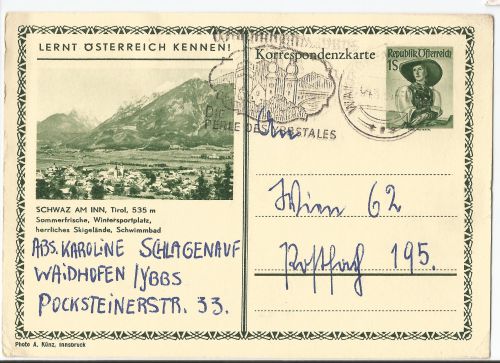 LERNT ÖSTERREICH KENNEN!
Korrespondenzkarte
Republik Österreich
1S
DIE
PERLE DES YBBSTALES
SCHWAZ AM INN, Tirol, 535 m
Sommerfrische, Wintersportplatz,
herrliches Skigelände, Schwimmbad
ABS. KAROLINE SCHLAGENAUF
WAIDHOFEN/YBBS
POCKSTEINERSTR. 33.
An
Wien 62
Postfach 195.
Photo A. Künz, Innsbruck